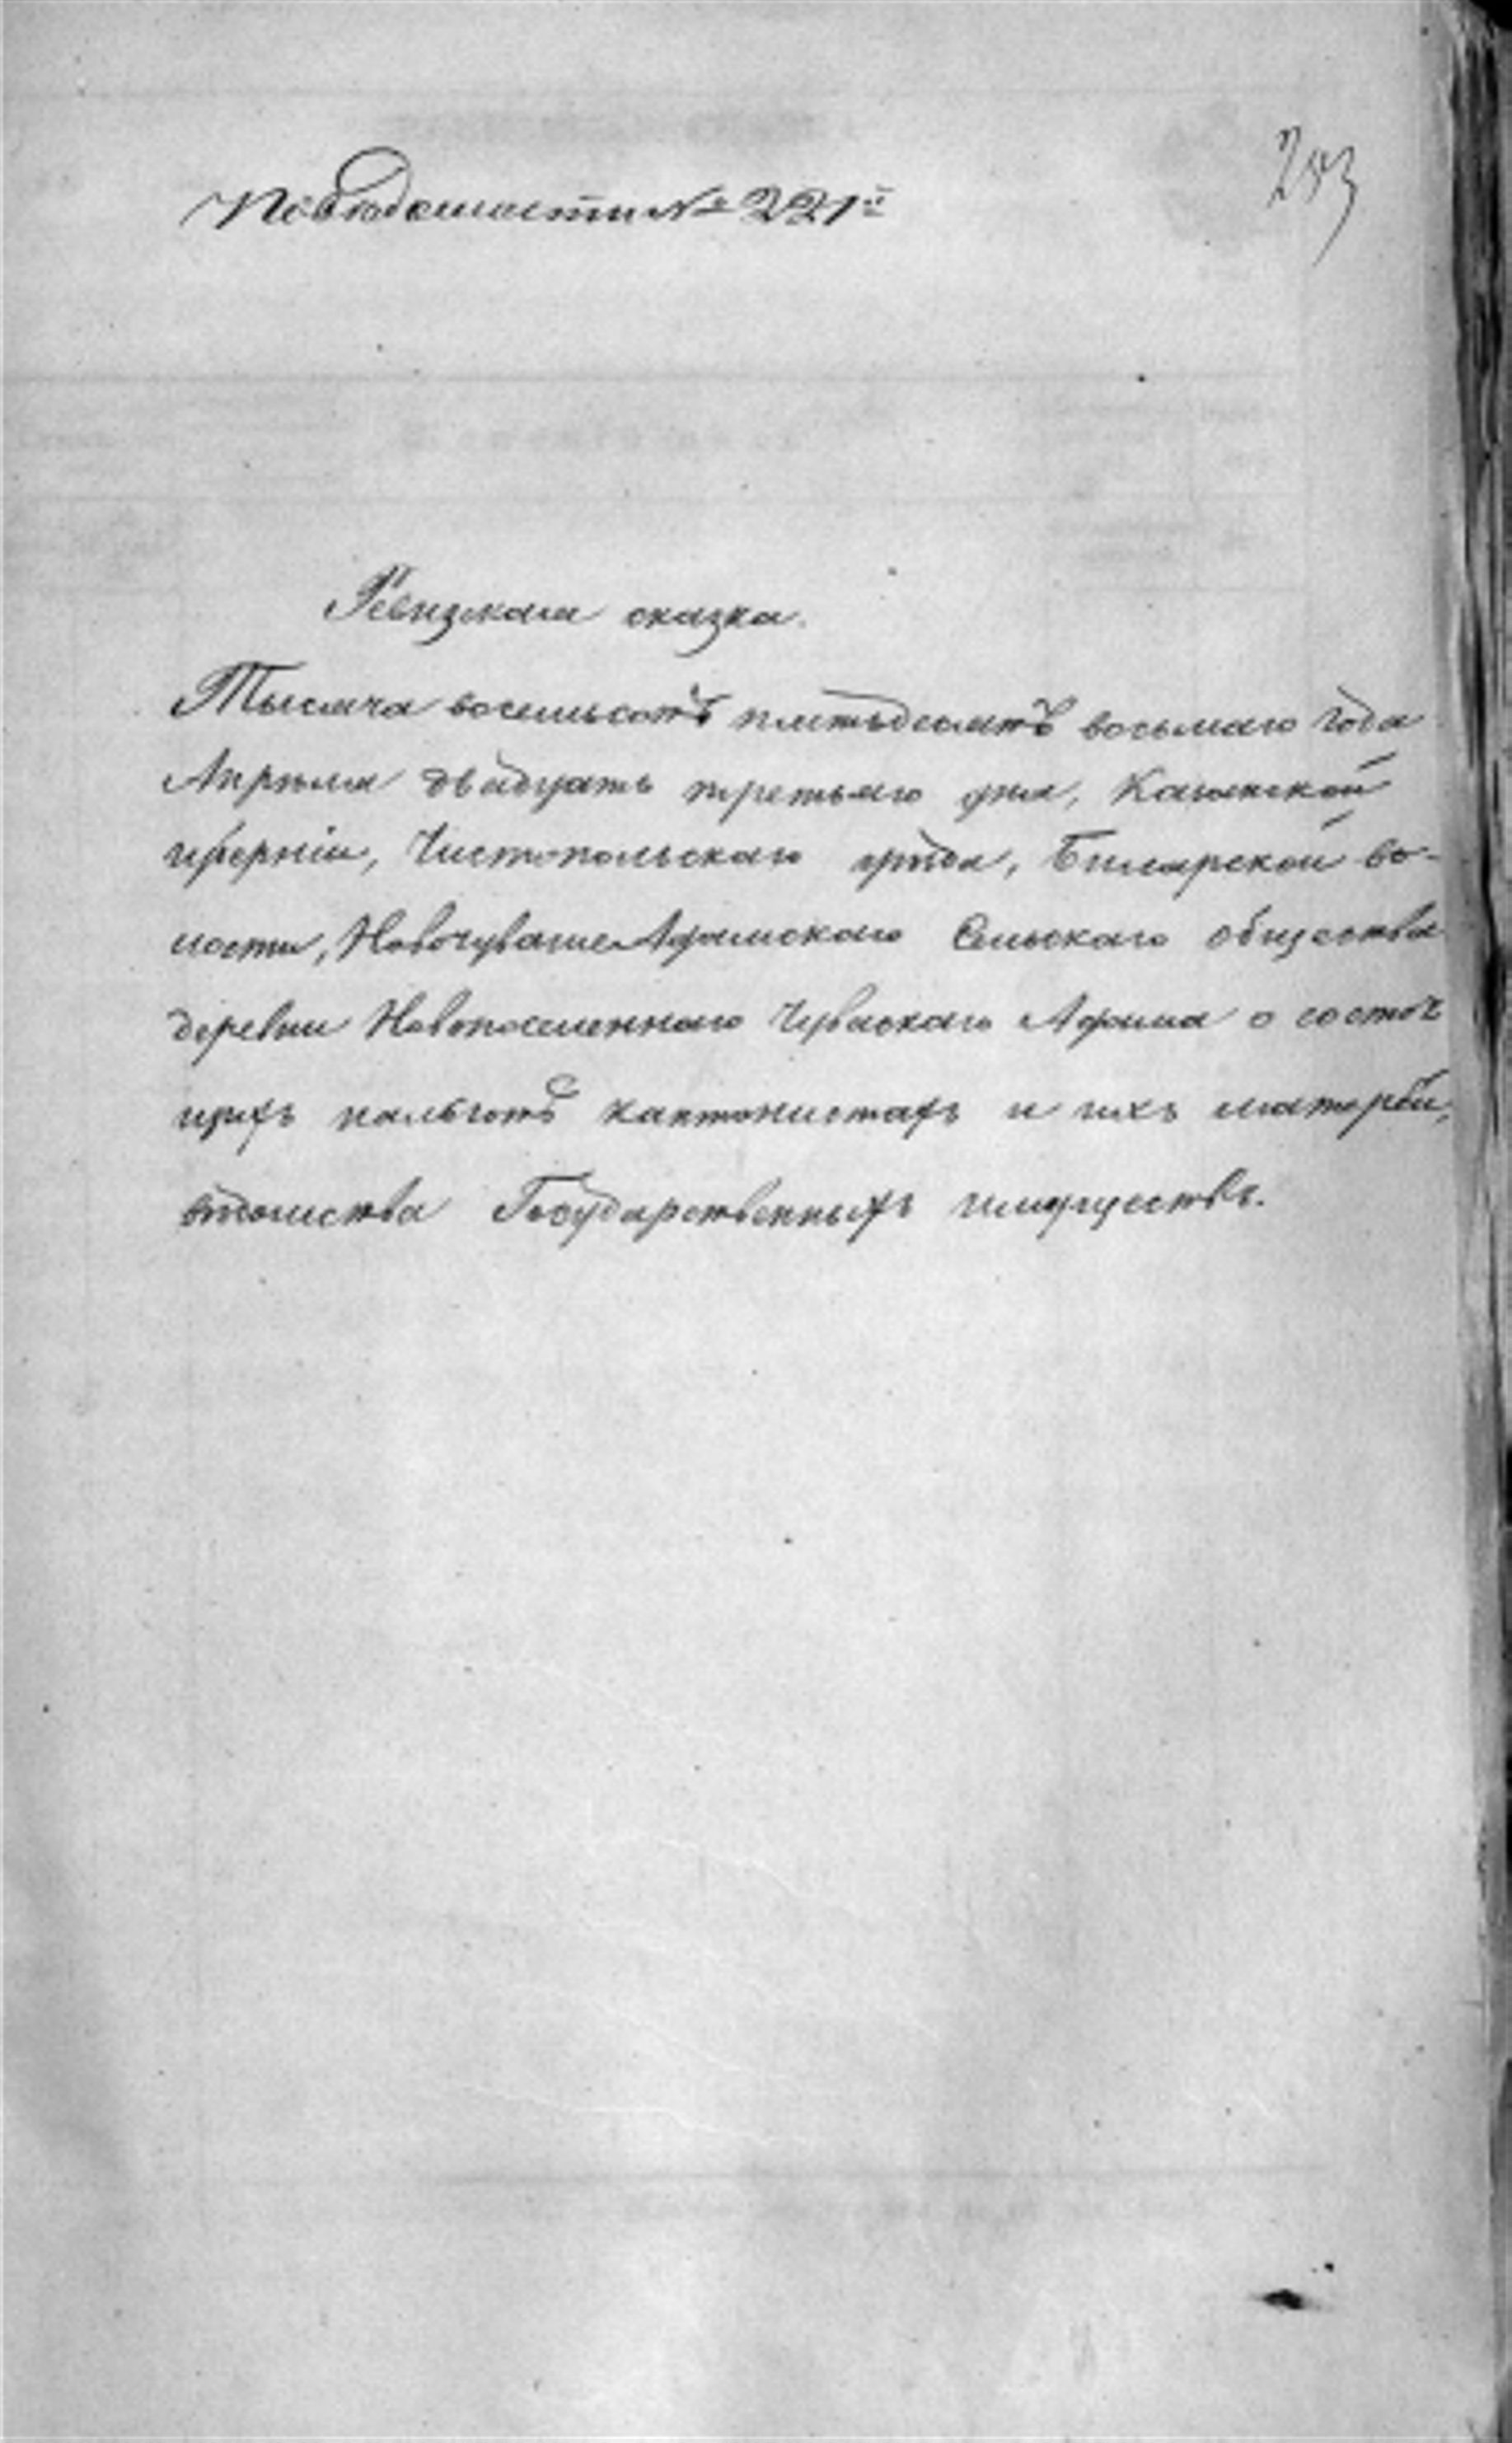 По ведомости № 221й
Ревизская сказка.
Тысяча восемьсотъ пятьдесятъ восьмаго года
Апрѣля двадцать третьяго дня, Казанской
губерніи, Чистопольскаго уѣзда, Билярской во-
лости, НовочувашеАдамскаго Сельскаго общества
деревни Новопоселеннаго Чувскаго Адама о состоя
щихъ нальготѣ кантонистахъ и ихъ матеряхъ,
вѣдомства Государственныхъ имуществъ.